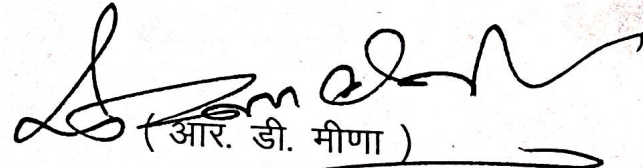 ( आर. डी. मीणा )